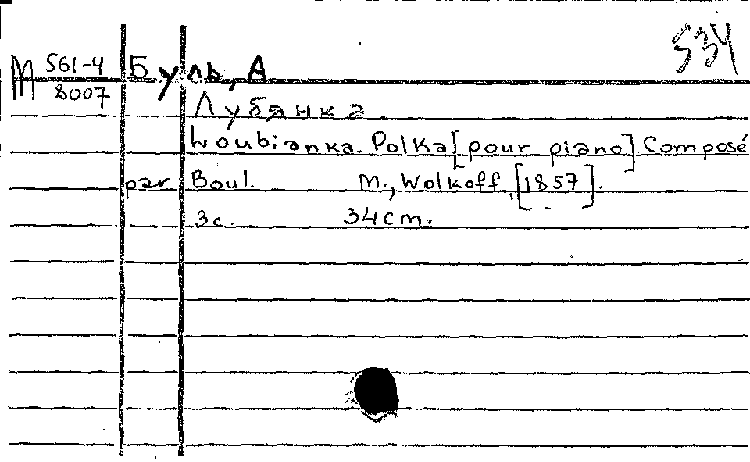 534
М 561-4 Буль, А
8007
Лубянка
Loubianka. Polka [pour piano] Composé
par Boul. М., Wolkoff, [1857].
3с. 34cm.